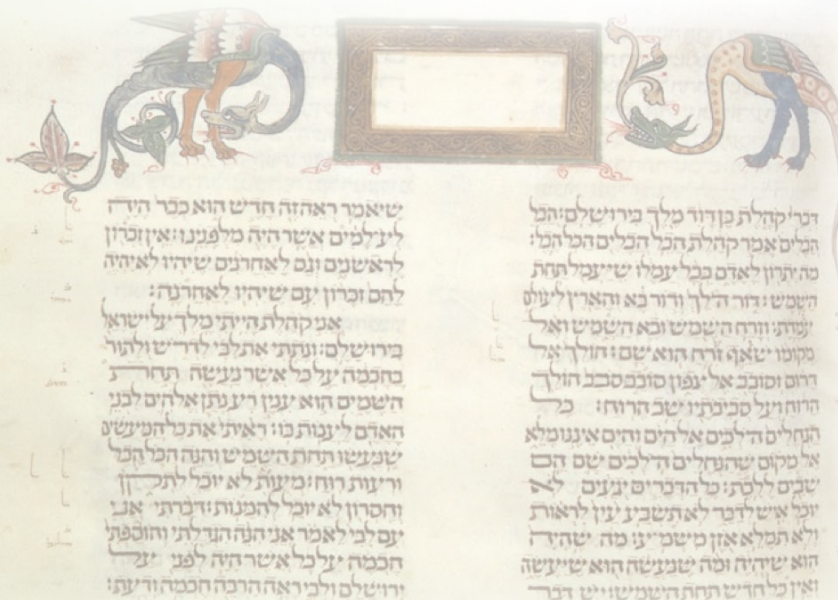 דברי קהלת בן דוד מלך בירושלם: הבל
הבלים אמר קהלת הבל הבלים הכל הבל:
מה יתרון לאדם בכל עמלו שיעמל תחת
השמש: דור הלך ודור בא והארץ לעולם
עמדת: וזרח השמש ובא השמש ואל
מקומו שואף זרח הוא שם: הולך אל
דרום וסובב אל צפון סובב סבב הולך
הרוח ועל סביבתיו שב הרוח: כל
הנחלים הלכים אל הים והים איננו מלא
אל מקום שהנחלים הלכים שם הם
שבים ללכת: כל הדברים יגעים לא
יוכל איש לדבר לא תשביע עין לראות
ולא תמלא אזן משמיע: מה שהיה
הוא שיהיה ומה שנעשה הוא שיעשה
ואין כל חדש תחת השמש: יש דבר
שיאמר ראה זה חדש הוא כבר היה
לעלמים אשר היה מלפנינו: אין זכרון
לראשנים וגם לאחרנים שיהיו לא יהיה
להם זכרון עם שיהיו לאחרנה:
אני קהלת הייתי מלך על ישראל
בירושלם: ונתתי את לבי לדריש ולתור
בחכמה על כל אשר נעשה תחת
השמים הוא ענין רע נתן אלהים לבני
האדם לענות בו: ראיתי את כל המעשים
שנעשו תחת השמש והנה הכל הבל
ורעות רוח: מעות לא יוכל לתקן
וחסרון לא יוכל להמנות: דברתי אני
עם לבי לאמר אני הנה הגדלתי והוספתי
חכמה על כל אשר היה לפני על
ירושלם ולבי ראה הרבה חכמה ודעת: